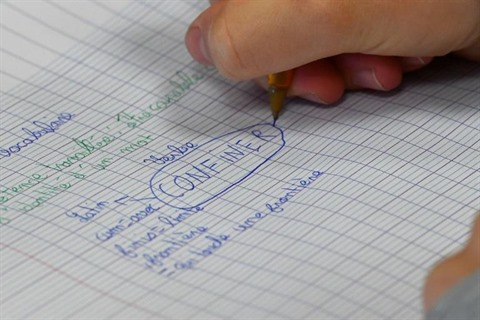 vocabulaire
Compétence travaillée : être capable
la famille d'un mot
verbe
CONFINER
latin
cum = avec
finis = limite
frontière
= qui borde une frontière